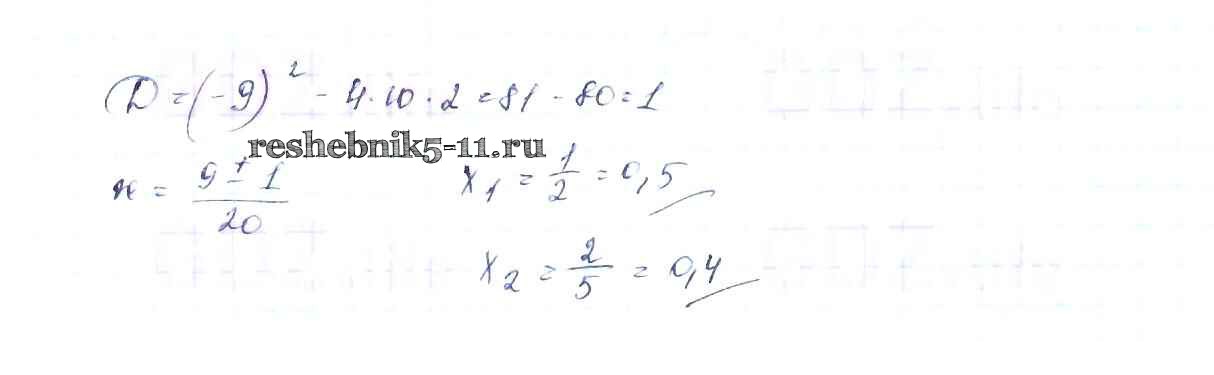 D = (-9)² - 4·10·2 = 81 - 80 = 1
reshebnik5-11.ru
x = (9 ± 1)/20 x₁ = 1/2 = 0,5
x₂ = 2/5 = 0,4